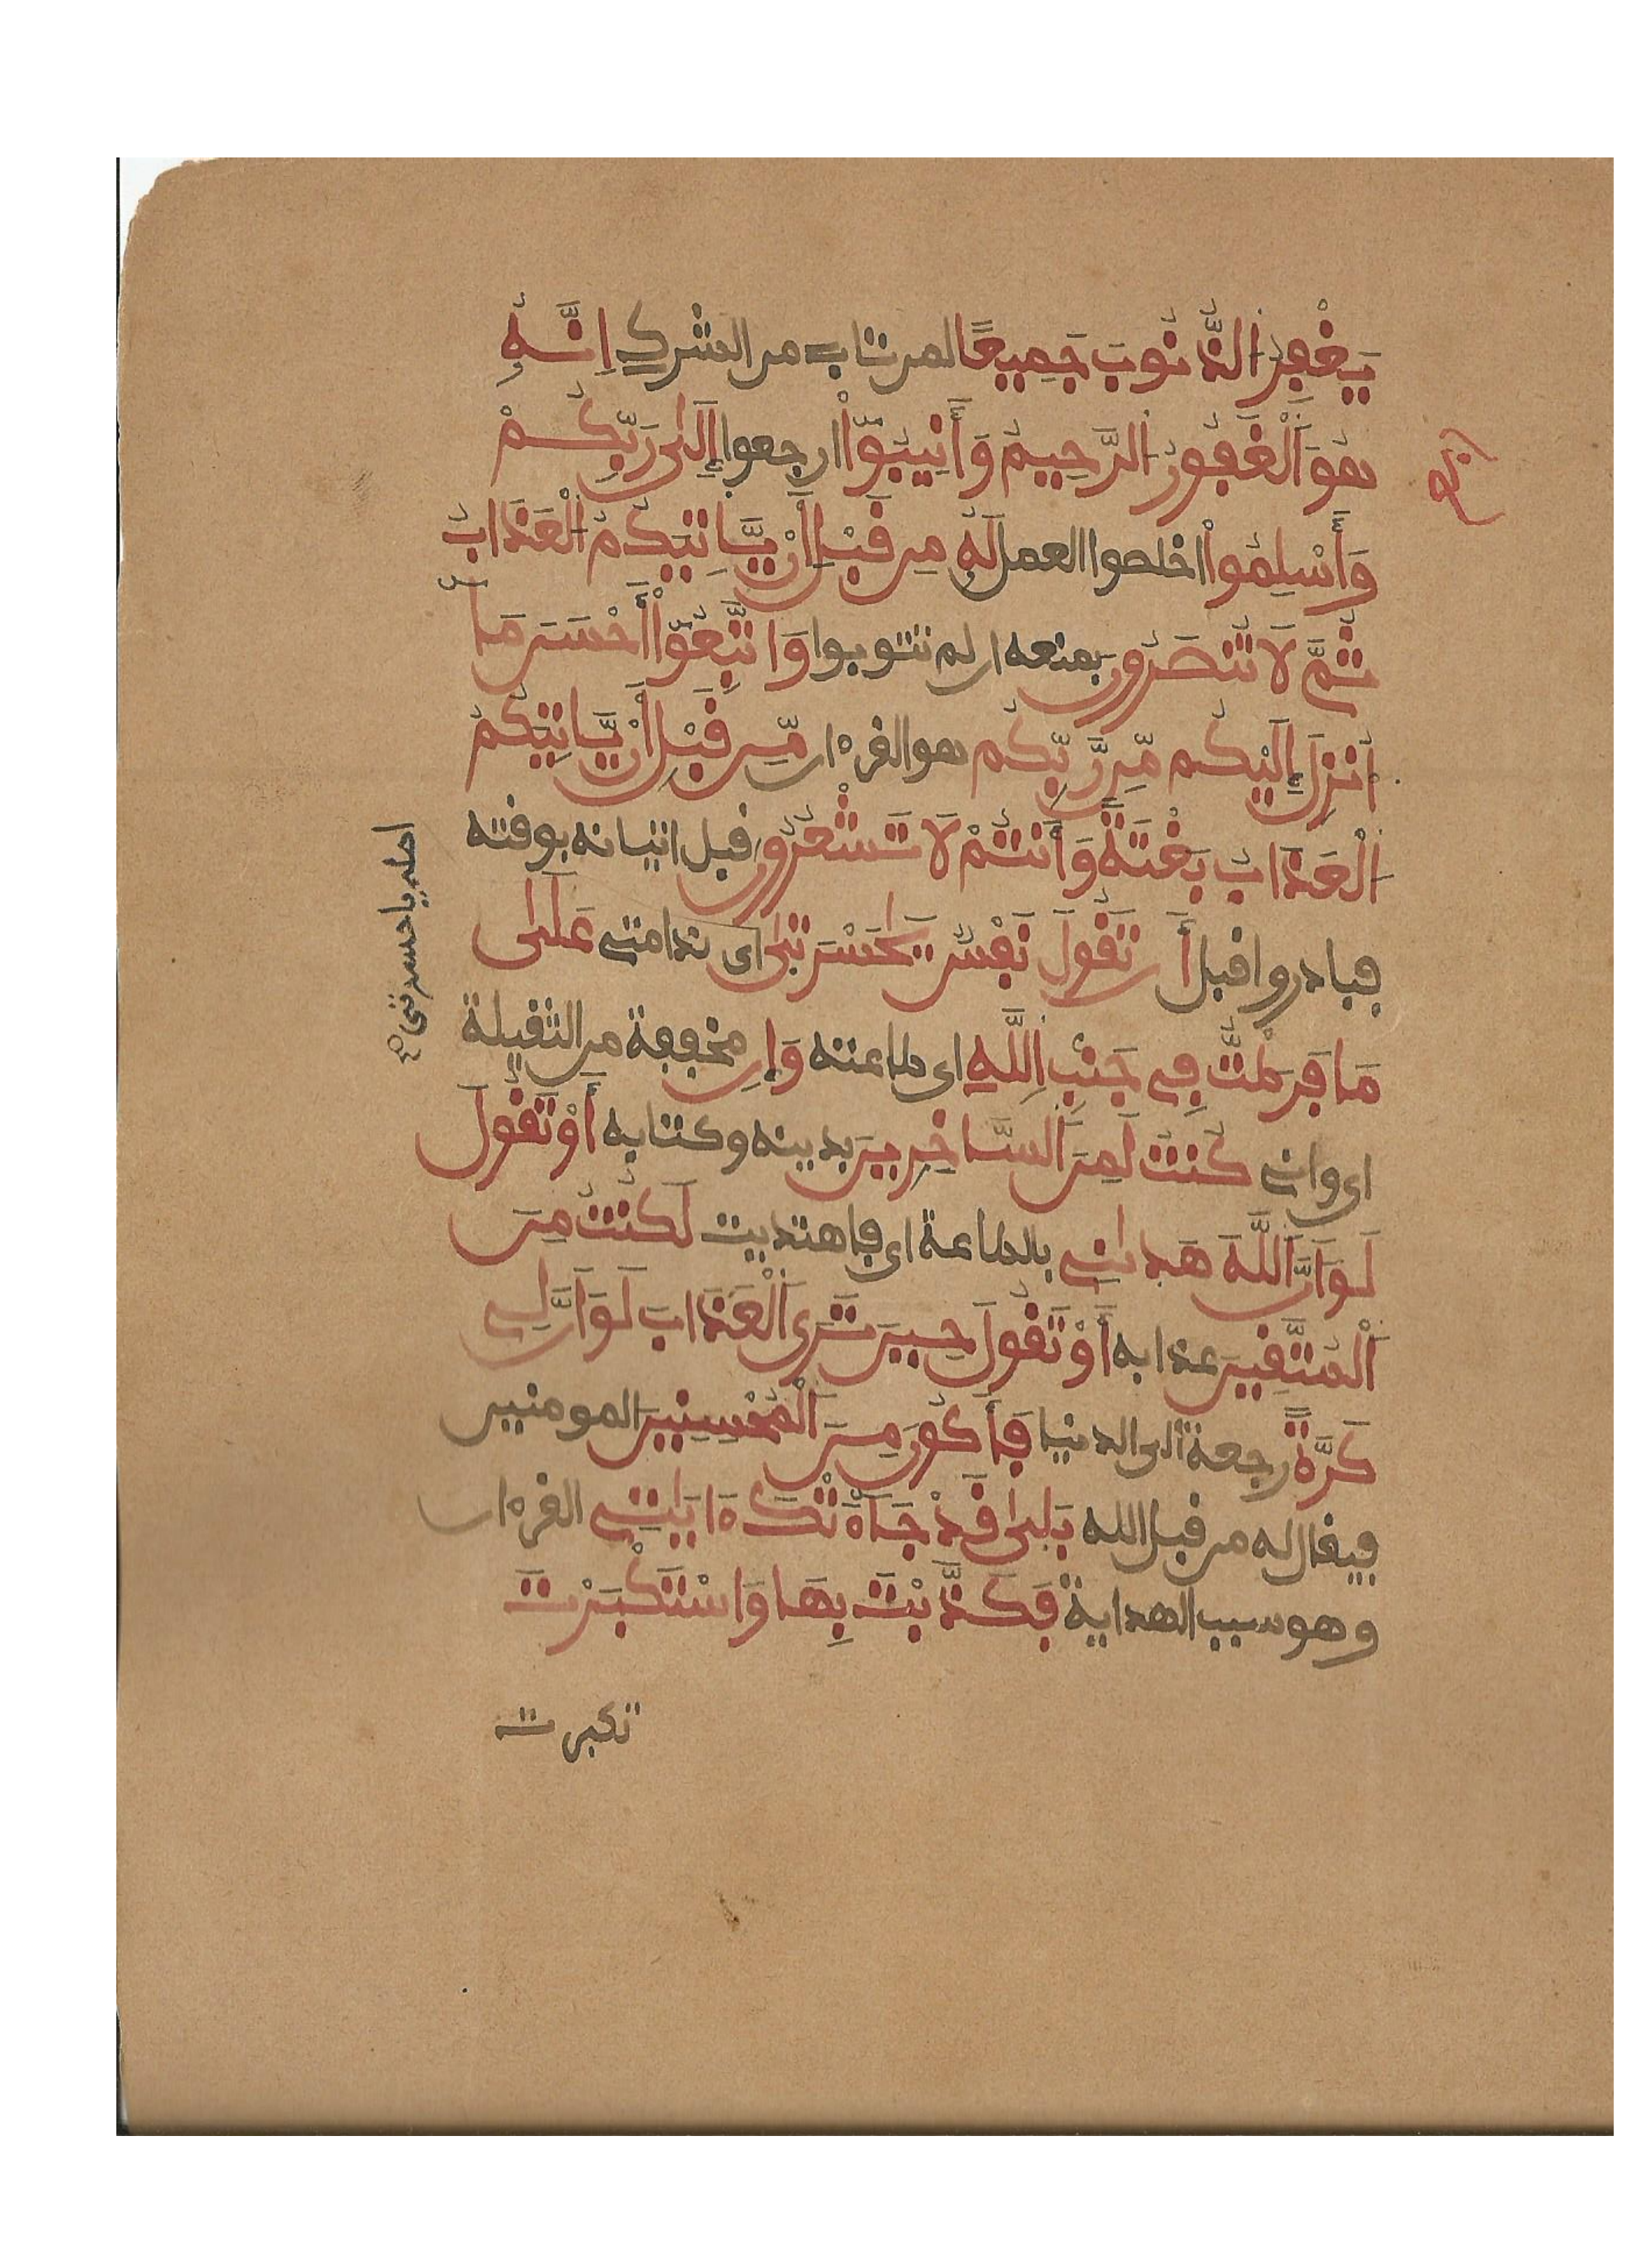 يَغْفِرُ الذُّنُوبَ جَمِيعًا لمن تاب من الشرك إِنَّهُ
هُوَ اَلْغَفُورُ الرَّحِيمُ وَأَنِيبُوٓاْ ارجعوا إِلَىٰ رَبِّكُمْ
وَأَسْلِمُواْ اخلصوا العمل لَهُ مِن قَبْلِ أَنْ يَّاتِيَكُمُ الْعَذَابُ
ثُمَّ لَا تُنصَرُونَ بمنعه ان لم تتوبوا وَاتَّبِعُوٓاْ أَحْسَنَ مَآ
أُنزِلَ إِلَيْكُم مِّن رَّبِّكُم هو القرءان مِّن قَبْلِ أَنْ يَّاتِيَكُمُ
الْعَذَابُ بَغْتَةً وَأَنتُمْ لَا تَشْعُرُونَ قبل اتيانه بوقته
فبادروا قبل أَن تَقُولَ نَفْسٌ يَٰحَسْرَتَىٰ اى ندامتى عَلَىٰ
مَا فَرَّطتُّ فِى جَنبِ اِللَّهِ اى طاعته وَإِن مخففة من الثقيلة
اى وانى كُنتُ لَمِنَ اَلسَّاخِرِينَ بدينه وكتابه أَوْ تَقُولَ
لَوَ اَنَّ اَللَّهَ هَدَانِى بالطاعة اى فاهتديت لَكُنتُ مِنَ
اَلْمُتَّقِينَ عذابه أَوْ تَقُولَ حِينَ تَرَى اَلْعَذَابَ لَوَ اَنَّ لِى
كَرَّةً رجعة الى الدنيا فَأَكُونَ مِنَ اَلْمُحْسِنِينَ المومنين
فيقال له من قبل الله بَلَىٰ قَدْ جَآءَتْكَ ءَايَٰتِى القرءان
وهو سبب الهداية فَكَذَّبْتَ بِهَا وَاسْتَكْبَرْتَ
تكبرت
اصله يا حسرتى